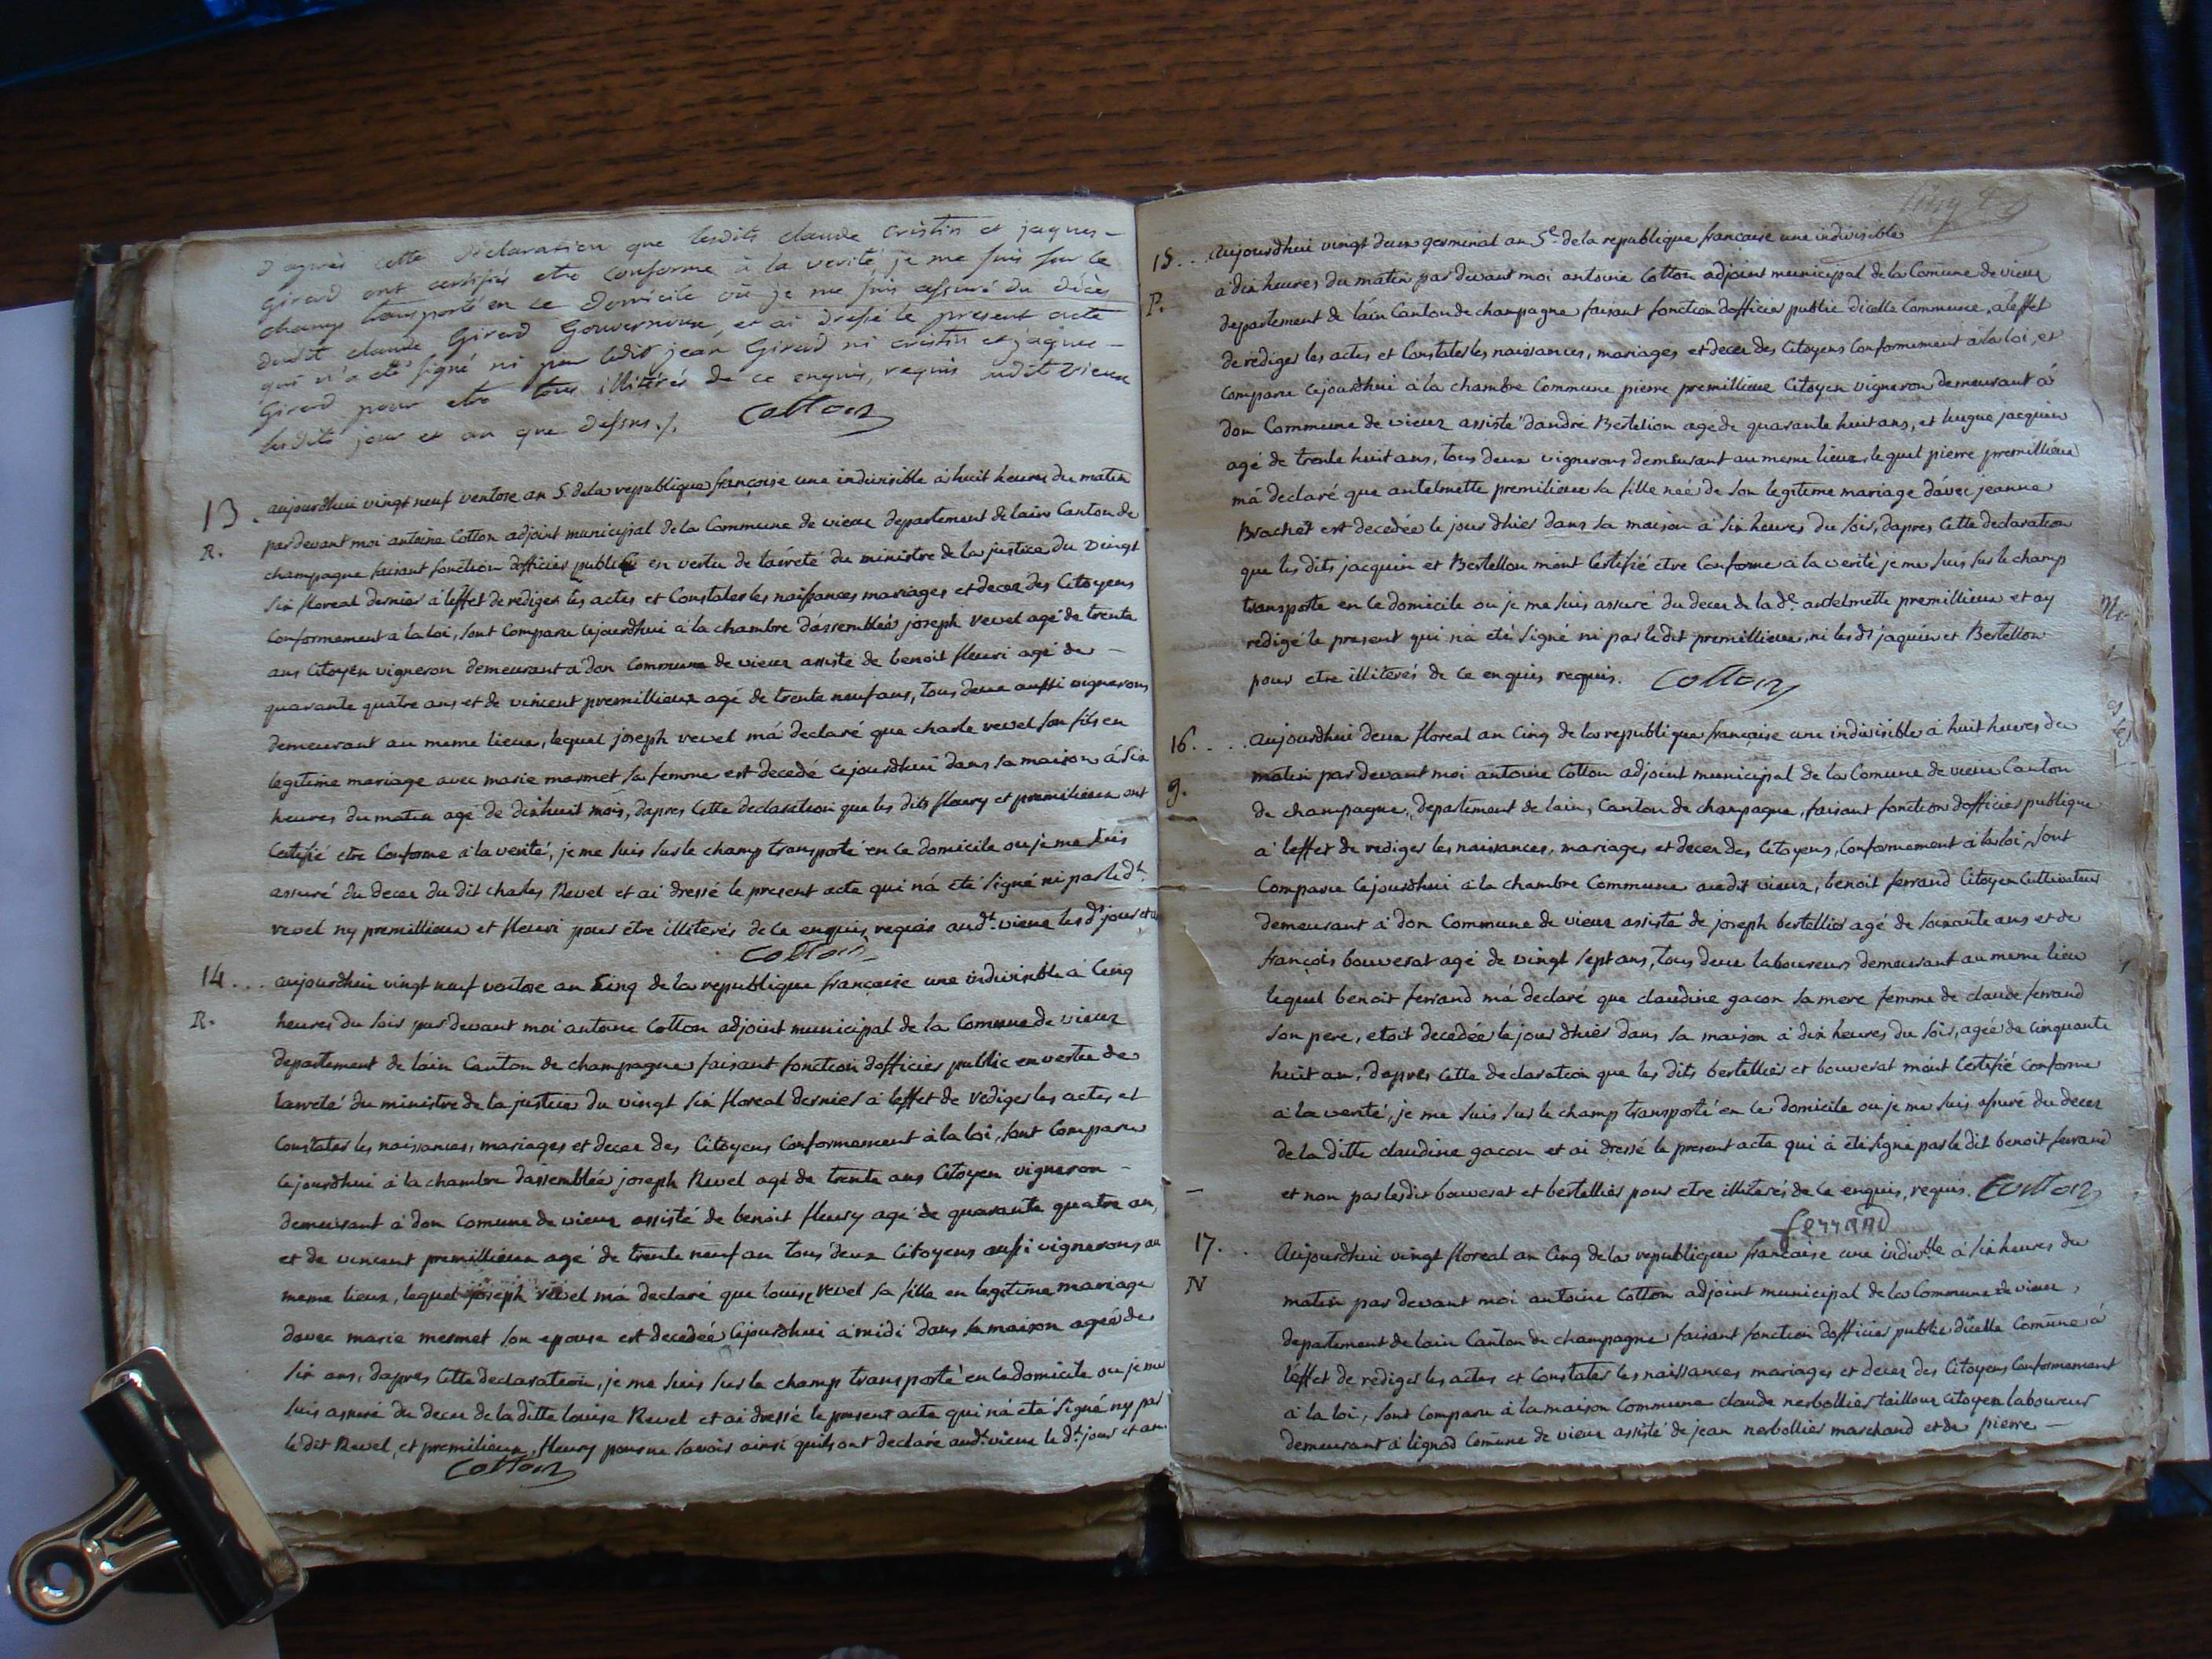 d'après cette déclaration que lesdits claude cristin et jaques -
Girard ont certifiés etre conforme à la verité je me suis sur le
champ transporté en ce domicile où je me suis assuré du décès
dudit claude Girard Gouverneux, et ai dressé le present acte
qui n'a eté signé ni par ledit jean Girard ni cristin et jaques -
Girard pour etre tous illitérés de ce enquis, requis audit vieux
lesdits jour et an que dessus ./. Cotton
13. aujourdhui vingt neuf ventose an 5. de la republique françoise une indivisible à huit heures du matin
R. pardevant moi antoine Cotton adjoint municipal de la Commune de vieux departement de lain Canton de
champagne faisant fonction dofficier public en vertu de larreté du ministre de la justice du vingt
six floreal dernier à leffet de rediger les actes et Constater les naissances mariages et decez des Citoyens
conformement a la loi, sont Comparu cejourdhui à la chambre dassemblée joseph revel agé de trente
ans Citoyen vigneron demeurant a don Commune de vieux assisté de benoit fleuri agé de -
quarante quatre ans et de vincent premillieux agé de trente neuf ans, tous deux aussi vignerons
demeurant au meme lieux, lequel joseph revel má declaré que charle revel son fils en
legitime mariage avec marie mermet sa femme est decedé cejourdhui dans sa maison à six
heures du matin agé de dixhuit mois, dapres cette declaration que les dits fleury et premilieux ont
Certifié etre Conforme a la verité, je me suis sur le champ transporté en ce domicile ou je me suis
assuré du decez du dit charles Revel et ai dressé le present acte qui ná eté signé ni par le dt.
revel ny premillieux et fleuri pour etre illiterés de ce enquis requis aud.t vieux les d.s jour et an
Cotton
14... aujourdhui vingt neuf ventose an Cinq de la republique française une indivisible à Cinq
R. heures du soir par devant moi antoine Cotton adjoint municipal de la Commune de vieux
departement de láin Canton de champagne faisant fonction dofficier public en vertu de
larreté du ministre de la justice du vingt six floreal dernier à leffet de rediger les actes et
Constater les naissances, mariages et decez des Citoyens Conformement à la loi, sont Comparu
Cejourdhui à la chambre dassemblée joseph Revel agé de trente ans Citoyen vigneron -
demeurant à don Comune de vieux assisté de benoit fleury agé de quarante quatre an,
et de vincent premillieux agé de trente neuf an tous deux Citoyens aussi vignerons au
meme lieux, lequel joseph revel má declaré que louise revel sa fille en legitime mariage
davec marie mermet son epouse est decedeé Cejourdhui à midi dans sa maison ageé de
six ans, dapres Cette declaration, je me suis sur le champ transporté en ce domicile ou je me
suis assuré du decez de la ditte louise Revel et ai dressé le present acte qui ná eté signé ny par
le dit Revel, et premilieux, fleury pour ne savoir ainsi quils ont declaré aud.t vieux le d.t jour et an
Cotton
15.. aujourdhui vingt deux germinal an 5e. de la republique française une indivisible
à dix heures du matin par devant moi antoine Cotton adjoint municipal de la Comune de vieux
P. departement de láin Canton de champagne faisant fonction dofficier public dicelle Commune, a leffet
de rediger les actes et Constater les naissances, mariages et decez des Citoyens Conformement à la loi, et
Comparu Cejourdhui à la chambre Commune pierre premillieux Citoyen vigneron demeurant à
don Commune de vieux assisté dandré Bertelion agé de quarante huit ans, et hugue jacquin
agé de trente huit ans, tous deux vignerons demeurant au meme lieux, lequel pierre premillieux
má declaré que antelmette premilieux sa fille neé de son legitime mariage dávec jeanne
Brachet est decedée le jour dhier dans sa maison à six heures du soir, dapres Cette declaration
que les dits jacquin et Bertellion mónt Certifié etre Conforme à la verité je me suis sur le champ
transporté en ce domicile ou je me suis assuré du decez de la de. antelmette premillieux et ay
redigé le present qui ná eté signé ni par le dit premillieux, ni les ds jaquin et Bertellon
pour etre illiterés de ce enquis requis. Cotton
16.... aujourdhui deux floreal an Cinq de la republique française une indivisible à huit heures du
matin par devant moi antoine Cotton adjoint municipal de la Comune de vieux Canton
g. de champagne, departement de lain, Canton de champagne, faisant fonction dofficier publique
a leffet de rediger les naissances, mariages et decez des Citoyens, Conformement à la loi, sont
Comparu Cejourdhui à la chambre Commune audit vieux, benoit ferrand Citoyen Cultivateur
demeurant à don Commune de vieux assisté de joseph bertellier agé de soixante ans et de
françois bouverat agé de vingt sept ans, tous deux laboureurs demeurant au meme lieu
lequel benoit ferrand má declaré que claudine gacon sa mere femme de claude ferrand
son pere, etoit decedée le jour dhier dans sa maison à dix heures du soir, agée de Cinquante
huit an, dapres Cette declaration que les dits bertellier et bouverat mónt Certifié Conforme
a la verité, je me suis sur le champ transporté en ce domicile ou je me suis assuré du decez
de la ditte claudine gacon et ai dressé le present acte qui à eté signé par le dit benoit ferrand
et non par lesdits bouverat et bertellier pour etre illiterés de ce enquis, requis. Cotton
ferrand
17.. Aujourdhui vingt floreal an Cinq de la republique française une indivble à six heures du
N matin par devant moi antoine Cotton adjoint municipal de la Commune de vieux,
departement de lain Canton de champagne faisant fonction dofficier public dicelle Comune à
léffet de rediger les actes et Constater les naissances mariages et decez des Citoyens Conformement
à la loi, sont Comparu à la maison Commune claude nerbollier tailleur Citoyen laboureur
demeurant à lignod Comune de vieux assisté de jean nerbollier marchand et de pierre -